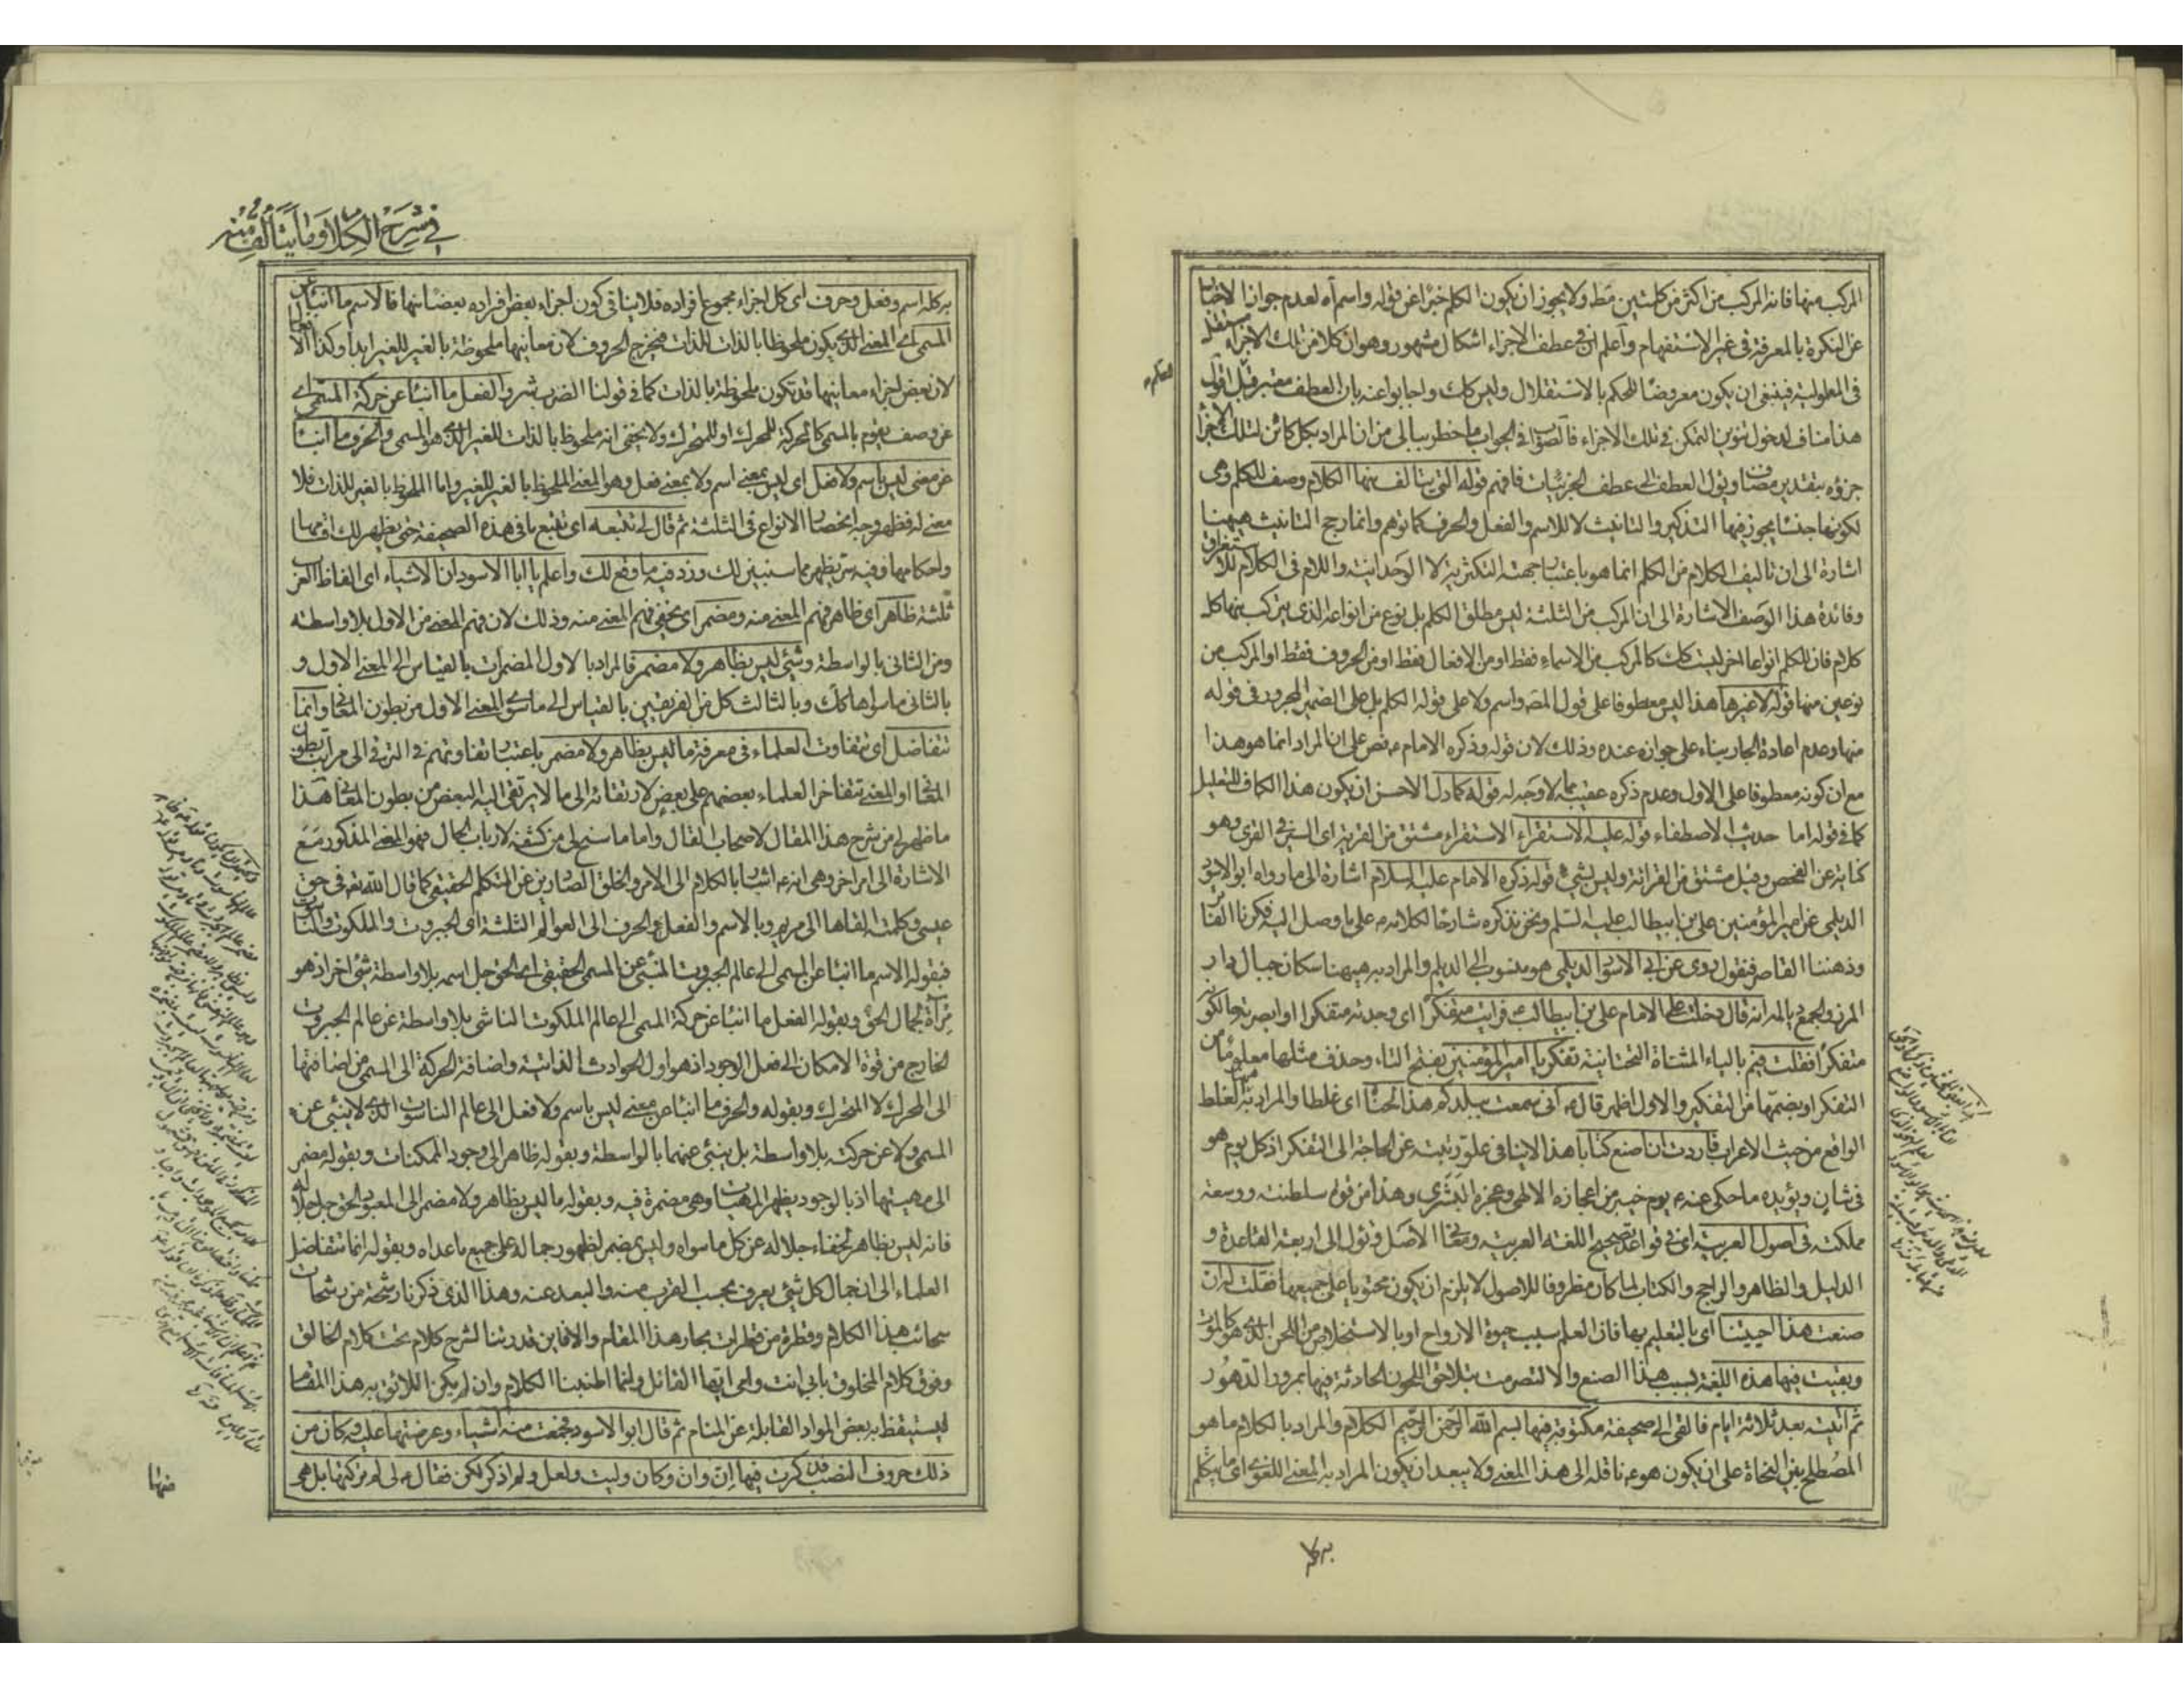 المركب منها فانه المركب من اكثر من كلمتين فقط ولا يجوز ان يكون الكلم خبرا عن قوله واسم آه لعدم جواز الاخبار
عن النكرة بالمعرفة في غير الاستفهام وآعلم ان في عطف الاجزاء اشكال مشهور وهو ان كلا من تلك الاجزاء مستقل
في المعلولية فينبغي ان يكون معروضا للحكم بالاستقلال وليس كك واجابوا عنه بان العطف معتبر قبل اقول
هذا مناف لدخول تنوين التمكن في تلك الاجزاء فالصواب في الجواب ما خطر ببالي من ان المراد بكل كائن لتلك الاجزاء
جزؤه بتقدير مضاف ويؤل العطف الى عطف الجزئيات فافهم قوله التي يتألف منها الكلام وصف للكلم وهي
لكونها جنسا يجوز فيها التذكير والتانيث لا للاسم والفعل والحرف كما توهم وانما رجح التانيث هيهنا
اشارة الى ان تاليف الكلام من الكلم انما هو باعتبار جهته التكثرية لا الوحدانية واللام في الكلام للاستغراق
وفائدة هذا الوصف الاشارة الى ان المركب من الثلثة ليس مطلق الكلم بل نوع من انواعه الذي يتركب منها كل
كلام فان للكلم انواعا اخر ليست كك كالمركب من الاسماء فقط او من الافعال فقط او من الحروف فقط او المركب من
نوعين منها قوله لا غيرها هذا ليس معطوفا على قول المصـ واسم ولا على قوله الكلم بل على الضمير المجرور في قوله
منها وعدم اعادة الجار بناء على جوازه عنده وذلك لان قوله وذكره الامام ع نص على ان المراد انما هو هذا
مع ان كونه معطوفا على الاول وعدم ذكره عقيبه مما لا وجه له قوله كما دل الاحسن ان يكون هذا الكاف للتعليل
كما في قوله اما حديث الاصطفاء قوله عليه الاستقراء الاستقراء مشتق من القرية اى السير في القرى وهو
كناية عن الفحص وقيل مشتق من القرائة وليس بشيء قوله ذكره الامام عليه السلام اشارة الى ما رواه ابو الاسود
الديلمي عن امير المؤمنين علي بن ابيطالب عليه السلم ونحن نذكره شارحا لكلامه ع على ما وصل اليه فكرنا الفاتر
وذهننا القاصر فنقول روى عن ابي الاسود الديلمي هو منسوب الى الديلم والمراد به هيهنا سكان جبال دار
المرز والجمع ديالمه انه قال دخلت على الامام علي بن ابيطالب فرايته متفكرا اى وجدته متفكرا او ابصرته حالكونه
متفكرا فقلت فيم بالياء المثناة التحتانية تفكر يا امير المؤمنين بفتح التاء وحذف مثلها معلوما من
التفكر او بضمها من التفكير والاول اظهر قال ع اني سمعت ببلدكم هذا لحنا اى غلطا والمراد به الغلط
الواقع من حيث الاعراب فاردت ان اصنع كتابا هذا لاينافي علو رتبته عن الحاجة الى التفكر اذ كل يوم هو
في شان ويؤيده ما حكي عنه ع يوم خيبر من اعجازه الالهي وعجزه البشري وهذا من قوة سلطنته ووسعة
مملكته في اصول العربية اى في قواعد تصحيح اللغة العربية ومعنا الاصل ويؤل الى اربعة القاعدة و
الدليل والظاهر والراجح والكتاب لما كان مظروفا للاصول لا يلزم ان يكون محتويا على جميعها فقلت له ان
صنعت هذا احييتنا اى بالتعليم بها فان العلم سبب حيوة الارواح او بالاستخلاص من اللحن الذي هو كالموت
وبقيت فيها هذه اللغة بسبب هذا الصنع والا لتصرمت بتلاحق اللحون الحادثة فيها بمرور الدهور
ثم اتيته بعد ثلاثة ايام فالقى الي صحيفة مكتوبة فيها بسم الله الرحمن الرحيم الكلام والمراد بالكلام ما هو
المصطلح بين النحاة على ان يكون هو ع ناقله الى هذا المعنى ولا يبعد ان يكون المراد به المعنى اللغوي اى ما يتكلم
به كله
في شرح الكلام وما يتألف منه
به كله اسم وفعل وحرف اى كل اجزاء مجموع افراده فلاينافي كون اجزاء بعض افراده بعضا منها فالاسم ما انبأ عن
المسمى اى المعنى الذي يكون ملحوظا بالذات للذات فيخرج الحروف لان معانيها ملحوظة بالغير للغير ابدا وكذا الافعال
لان بعض اجزاء معانيها قد تكون ملحوظة بالذات كما في قولنا الضرب شر والفعل ما انبأ عن حركة المسمى اى
عن وصف يقوم بالمسمى كالحركة للمحرك او للمتحرك ولا يخفى انه ملحوظ بالذات للغير الذي هو المسمى والحرف ما انبأ
عن معنى ليس باسم ولا فعل اى ليس بمعنى اسم ولا بمعنى فعل وهو المعنى الملحوظ بالغير للغير واما الملحوظ بالغير للذات فلا
معنى له فظهر وجه انحصار الانواع في الثلثة ثم قال لي تتبعه اى تتبع ما في هذه الصحيفة حتى يظهر لك اقسامها
واحكامها وفيه سر يظهر مما سنبين لك وزد فيه ما وقع لك واعلم يا ابا الاسود ان الاشياء اى الفاظ العرب
ثلثة ظاهر اى ظاهر فهم المعنى منه ومضمر اى يخفى فهم المعنى منه وذلك لان فهم المعنى من الاول بلا واسطة
ومن الثاني بالواسطة وشئ ليس بظاهر ولا مضمر فالمراد بالاول المضمرات بالقياس الى المعنى الاول و
بالثاني ما سواها كك وبالثالث كل من الفريقين بالقياس الى ما سوى المعنى الاول من بطون المعاني وانما
تتفاضل اى تتفاوت العلماء في معرفة ما ليس بظاهر ولا مضمر باعتبار تفاوتهم في الترقي الى مراتب بطون
المعنى او المعنى تتفاخر العلماء بعضهم على بعض لارتقائه الى ما لا يرتقي اليه البعض من بطون المعاني هذا
ما ظهر لي من شرح هذا المقال لاصحاب القال واما ما سنح لي من كشفه لارباب الحال فهو المعنى المذكور مع
الاشارة الى امر اخر وهي انه ع اشار بالكلام الى الامر والخلق الصادرين عن المتكلم الحقيقي كما قال الله تعـ في حق
عيسى وكلمته القاها الى مريم وبالاسم والفعل والحرف الى العوالم الثلثة اى الجبروت والملكوت والناسوت
فبقوله الاسم ما انبأ عن المسمى الى عالم الجبروت المنبئ عن المسمى الحقيقي اى الحق جل اسمه بلا واسطة شئ اخر اذ هو
مرآة لجمال الحق وبقوله الفعل ما انبأ عن حركة المسمى الى عالم الملكوت الناشي بلا واسطة عن عالم الجبروت
الخارج من قوة الامكان الى فعل الوجود اذ هو اول الحوادث الذاتية واضافة الحركة الى المسمى من اضافتها
الى المحرك لا المتحرك وبقوله والحرف ما انبأ عن معنى ليس باسم ولا فعل الى عالم الناسوت الذي لا ينبئ عن
المسمى ولا عن حركته بلا واسطة بل ينبئ عنهما بالواسطة وبقوله ظاهر الى وجود الممكنات وبقوله مضمر
الى مهيتها اذ بالوجود يظهر المهيات وهي مضمرة فيه وبقوله ما ليس بظاهر ولا مضمر الى المعبود الحق جل جلاله
فانه ليس بظاهر لخفاء جلاله عن كل ما سواه وليس بمضمر لظهور جماله على جميع ما عداه وبقوله انما تتفاضل
العلماء الى ان جمال كل شئ يعرف بحسب القرب منه والبعد عنه وهذا الذي ذكرنا رشحة من رشحات
سحائب هذا الكلام وقطرة من قطرات بحار هذا المقام والا فاين قدرتنا لشرح كلام تحت كلام الخالق
وفوق كلام المخلوق بابي انت وامي ايها القائل وانما اطنبنا الكلام وان لم يكن اللائق به هذا المقام
ليستيقظ به بعض المواد القابلة عن المنام ثم قال ابو الاسود فجمعت منه اشياء وعرضتها عليه فكان من
ذلك حروف النصب فذكرت فيها ان وان وكان وليت ولعل ولم اذكر لكن فقال لي لم تركتها بل هي
منها